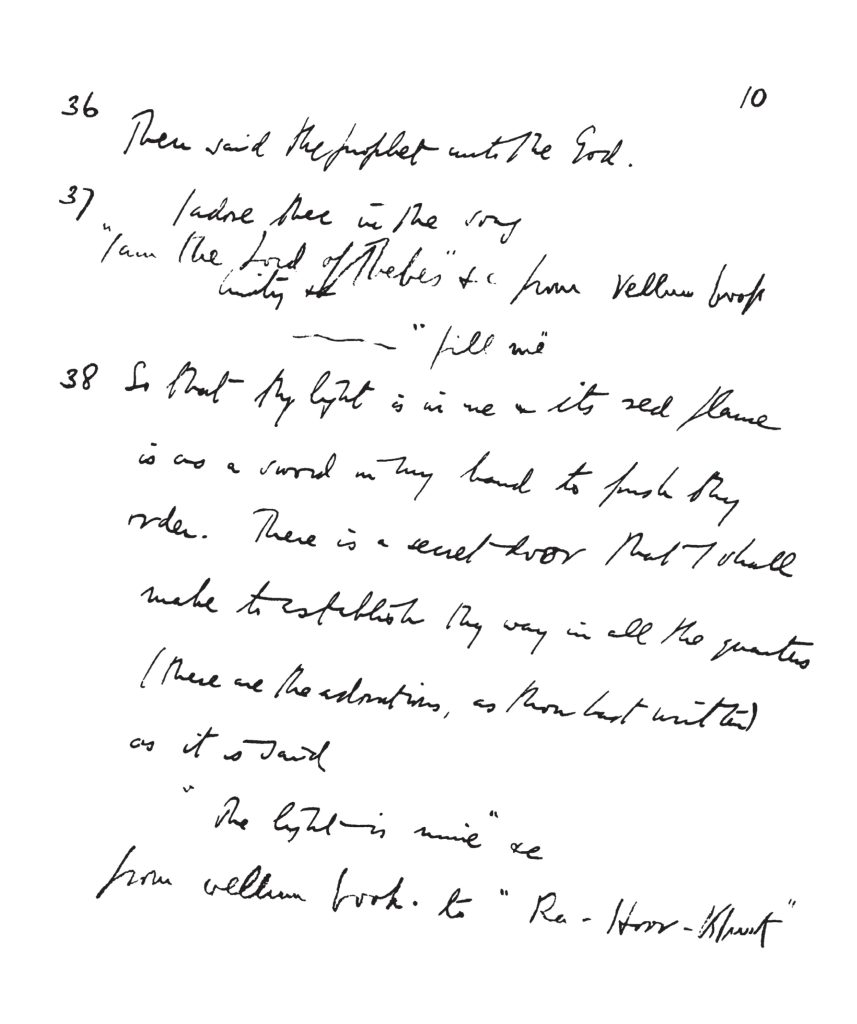 10
36 Then said the prophet unto the God.
37 I adore thee in the song
"I am the Lord of Thebes" &c from vellum book
Unity &c
——— "fill me"
38 So that thy light is in me & its red flame
is as a sword in my hand to push thy
order. There is a secret door that I shall
make to establish thy way in all the quarters
(these are the adorations, as thou hast written)
as it is said
"The light is mine" &c
from vellum book. to "Ra-Hoor-Khuit"